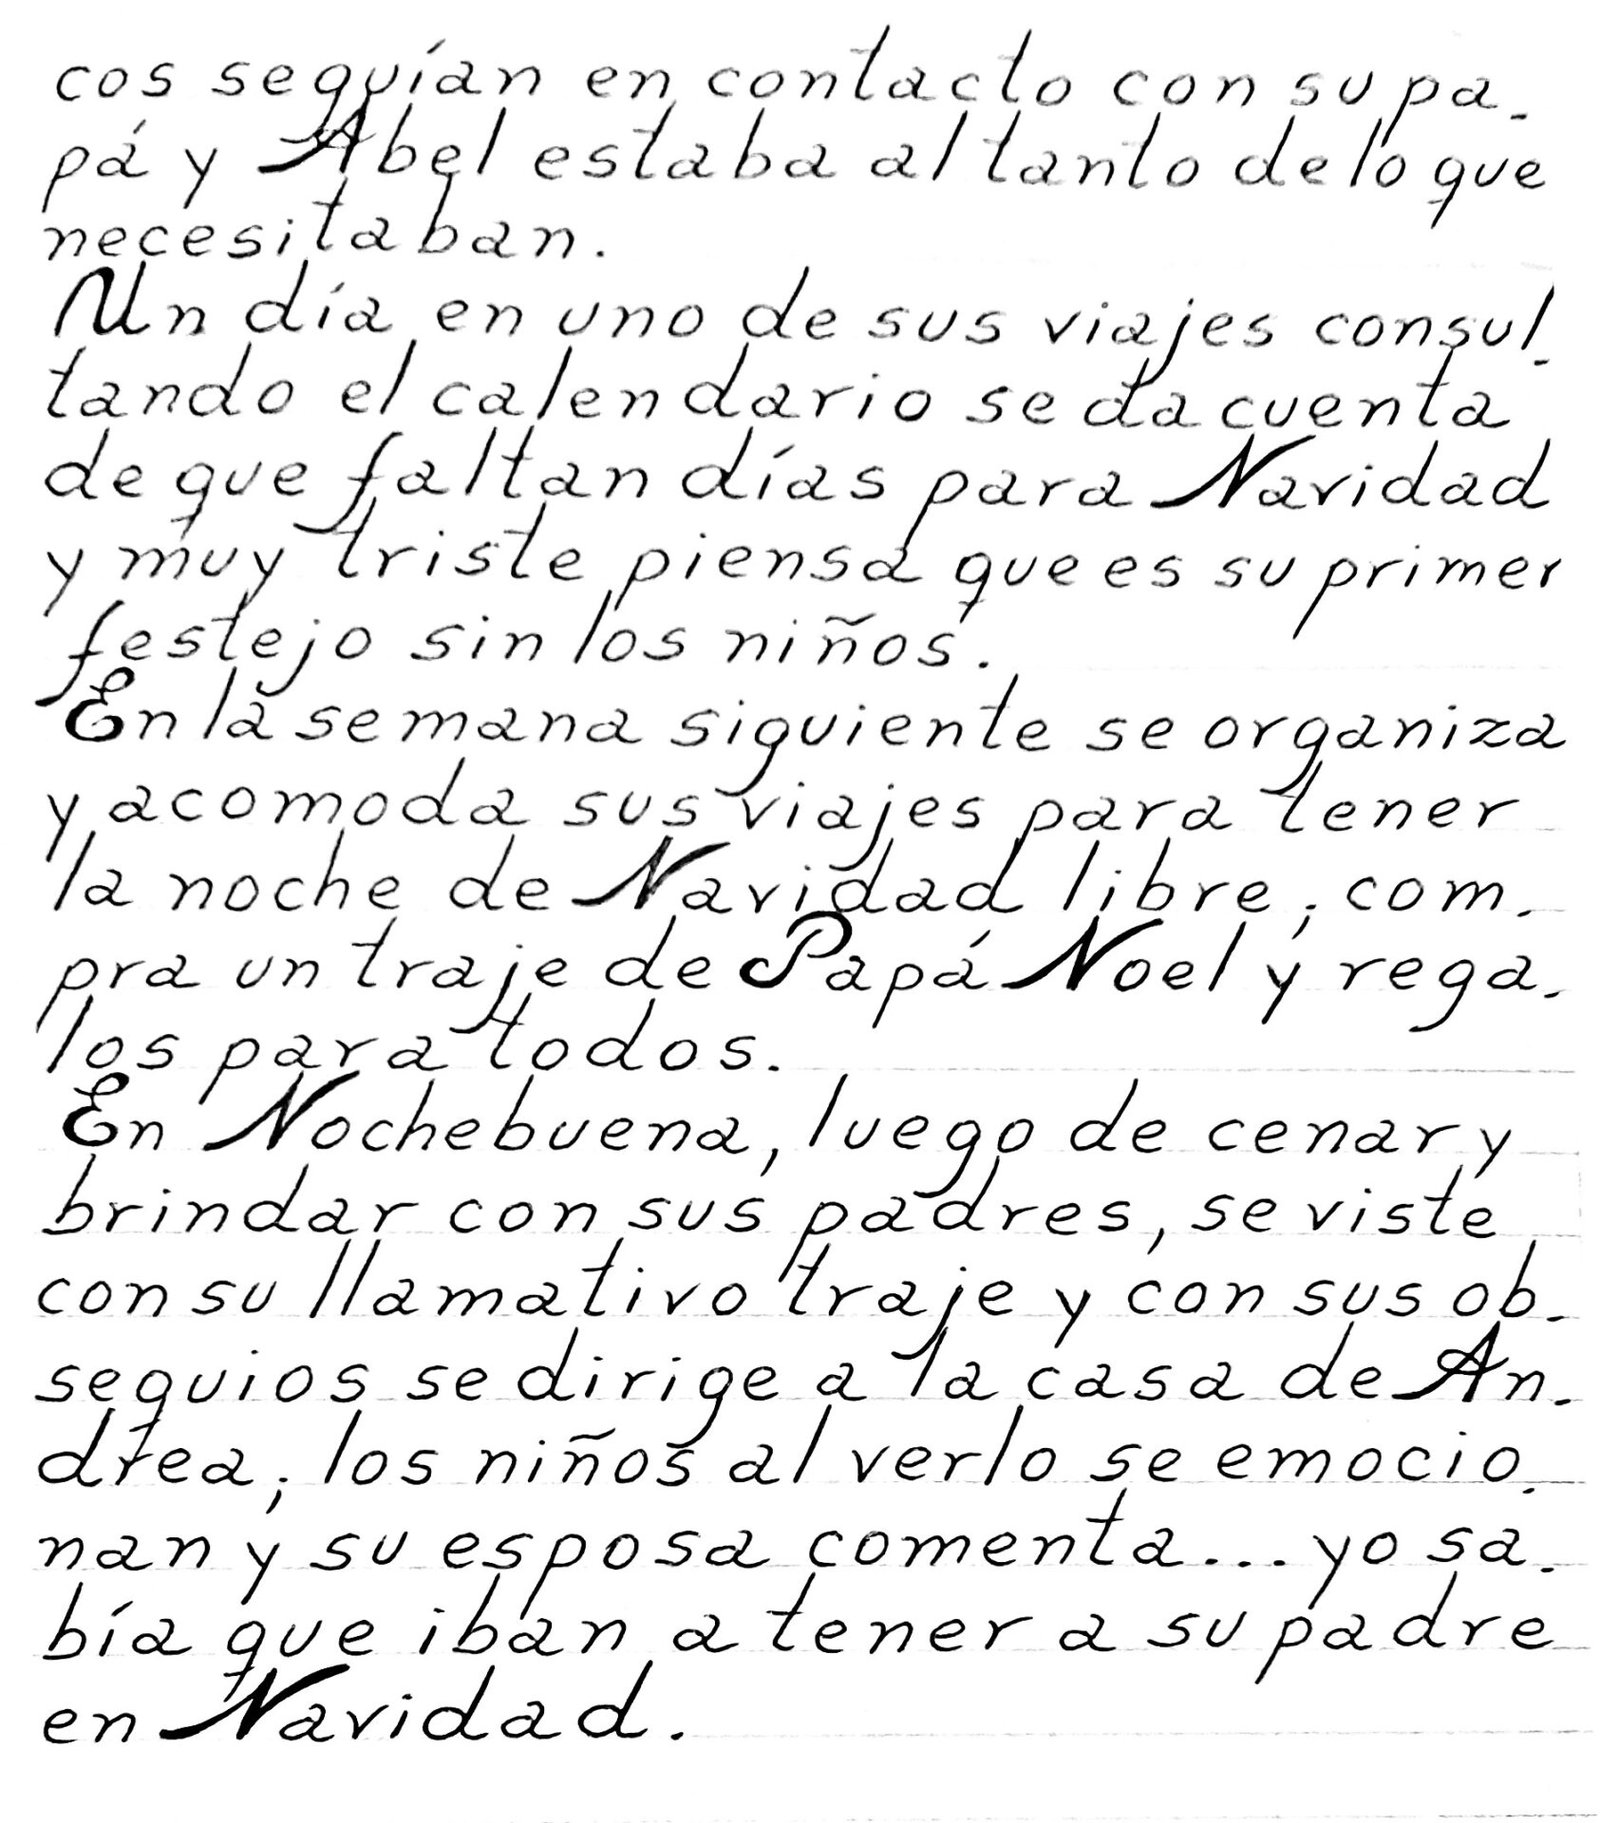 cos seguían en contacto con su pa-
pá y Abel estaba al tanto de lo que
necesitaban.
Un día en uno de sus viajes consul-
tando el calendario se da cuenta
de que faltan días para Navidad
y muy triste piensa que es su primer
festejo sin los niños.
En la semana siguiente se organiza
y acomoda sus viajes para tener
la noche de Navidad libre; com-
pra un traje de Papá Noel y rega-
los para todos.
En Nochebuena, luego de cenar y
brindar con sus padres, se viste
con su llamativo traje y con sus ob-
sequios se dirige a la casa de An-
drea; los niños al verlo se emocio-
nan y su esposa comenta... yo sa-
bía que iban a tener a su padre
en Navidad.